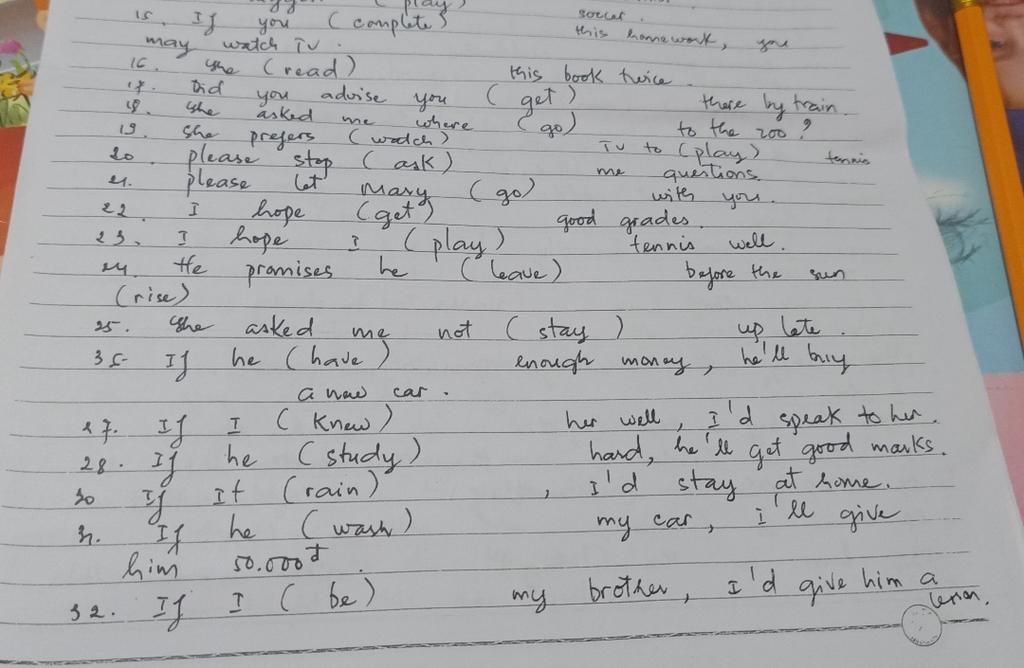 (play) soccer.
15. If you (complete) this homework, you
may watch TV.
16. She (read) this book twice
17. Did you advise you (get) there by train.
18. She asked me where (go) to the zoo?
19. She prefers (watch) TV to (play) tennis
20. please stop (ask) me questions
21. please let Mary (go) with you.
22. I hope (get) good grades.
23. I hope I (play) tennis well.
24. He promises he (leave) before the sun
(rise)
25. She asked me not (stay) up late.
35 If he (have) enough money, he'll buy
a new car.
27. If I (Know) her well, I'd speak to her.
28. If he (study) hard, he'll get good marks.
30 If It (rain) , I'd stay at home.
31. If he (wash) my car, I'll give
him 50.000đ
32. If I (be) my brother, I'd give him a